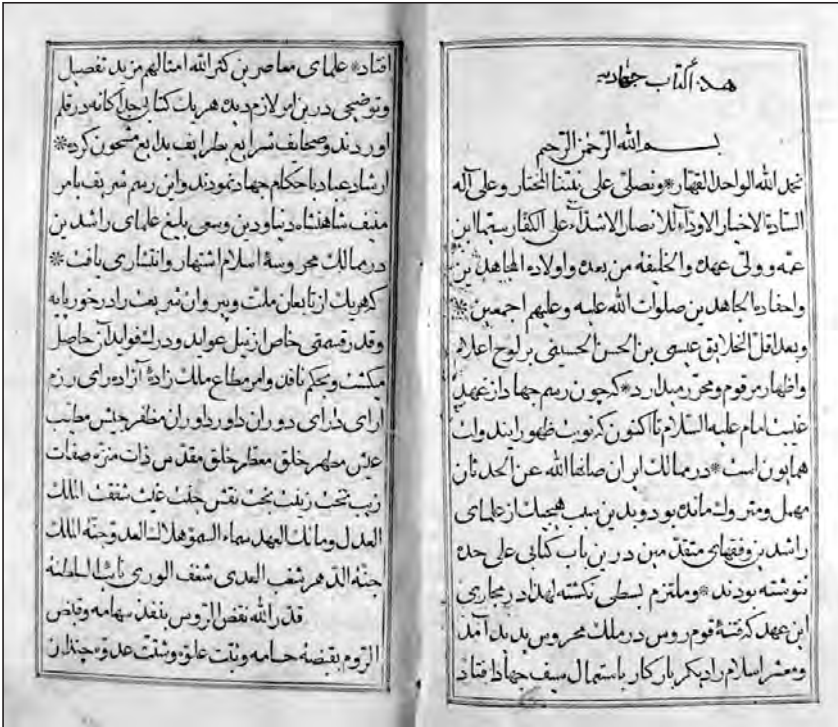 هذا کتاب جهادیه
بسم الله الرحمن الرحیم
نحمد الله الواحد القهار * ونصلی علی نبینا المختار وعلی آله
السادة الاخیار الاوداء للانصار الاشداء علی الکفار سیما ابن
عمه وولی عهده والخلیفة من بعده واولاده المجاهدین
واحفاده الجاهدین صلوات الله علیه وعلیهم اجمعین *
وبعد اقل الخلایق عیسی بن الحسن الحسینی بر لوح اعلام
واظهار مرقوم ومحرر میدارد * که چون رسم جهاد از عهد
غیبت امام علیه السلام تا اکنون که نوبت ظهور ایندولت
همایون است * در ممالک ایران صانها الله عن الحدثان
مهمل ومتروک مانده بود و بدین سبب هیچیک از علمای
راشدین وفقهای متقدمین درین باب کتابی علی حده
ننوشته بودند * وملتزم بسطی نکشته لهذا در مجاری
این عهد که فتنهٔ قوم روس در ملک محروس پدید آمد
ومعشر اسلام را دیکر بار کار باستعمال سیف جهاد افتاد
افتاد * علمای معاصرین کثر الله امثالهم مزید تفصیل
وتوضیحی درین امر لازم دیده هر یک کتابی جداکانه در قلم
اوردند وصحایف شرایع بطرایف بدایع مشحون کرده *
ارشاد عباد باحکام جهاد نمودند واین رسم شریف بامر
منیف شاهنشاه دنیا ودین وسعی بلیغ علمای راشدین
در ممالک محروسهٔ اسلام اشتهار وانتشاری یافت *
که هریک از تابعان ملت وپیروان شریعت را در خور پایه
وقدر قسمتی خاص از نیل عواید ودرک فواید آن حاصل
میکشت وبحکم نافذ وامر مطاع ملک زادهٔ آزاده رای رزم
آرای دارای دوران داور داوران مظفر جیش مطایب
عیش مطهر خلق معطر خلق مقدس ذات منزه صفات
زیب تخت زینت بخت نقش
العدل ومالک العهد سماء السمو هلاک العدو جنة الملک
جنة الدهر شغف الوری نایب السلطنة
قدر الله نقض الروس بنفذ سهامه وقبض
الروم بقبضة حسامه وثبت وشتت عدوه چندان